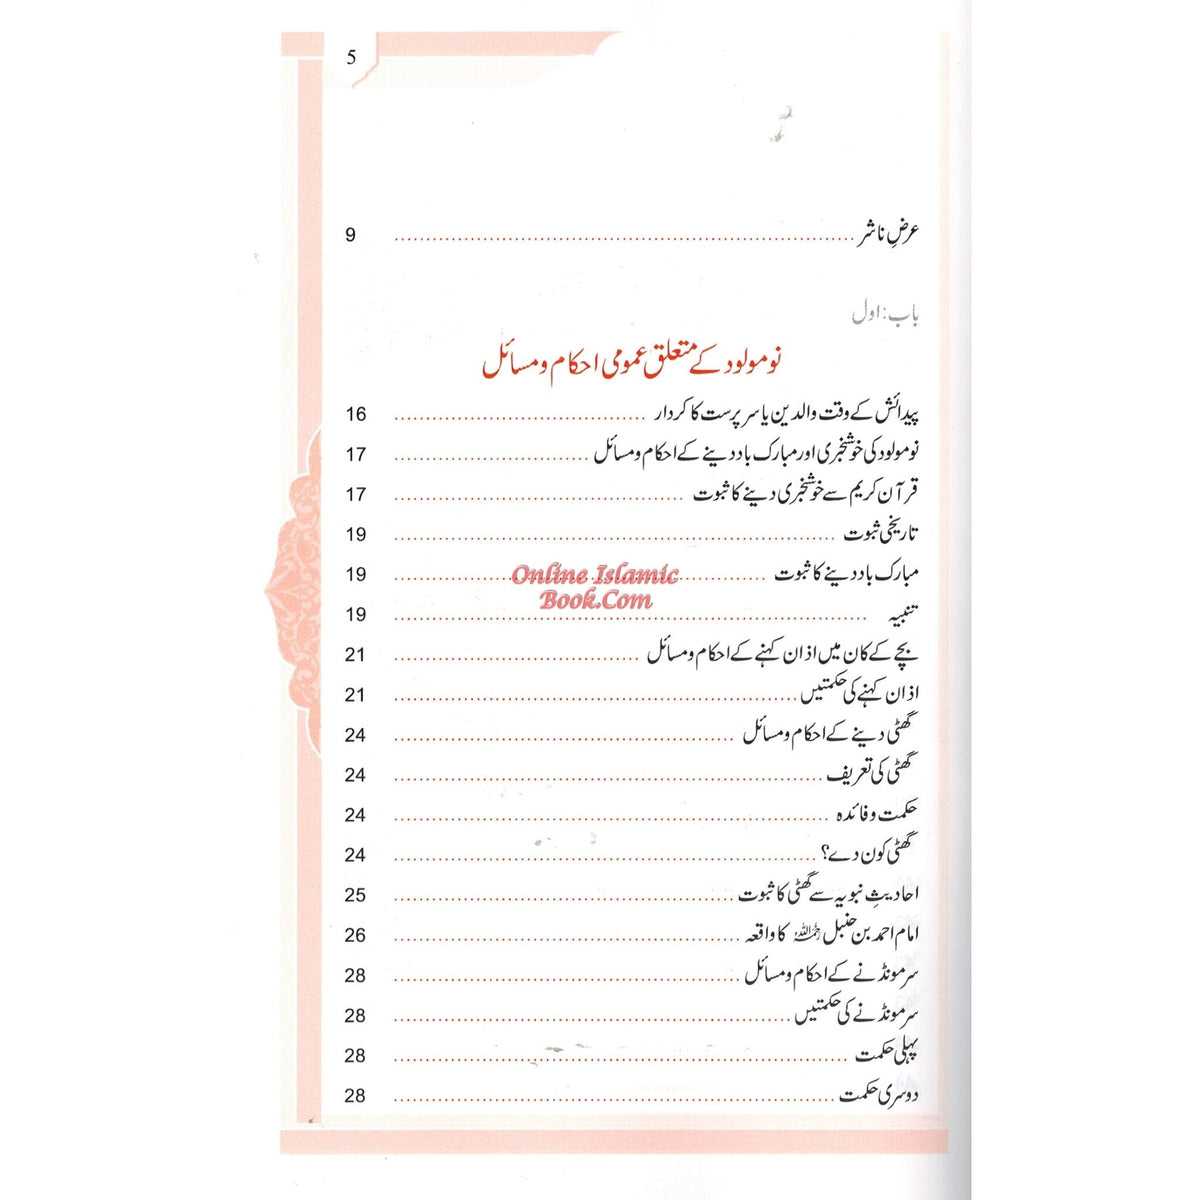 5
عرضِ ناشر ........ 9
باب: اول
نومولود کے متعلق عمومی احکام و مسائل
پیدائش کے وقت والدین یا سرپرست کا کردار ........ 16
نومولود کی خوشخبری اور مبارک باد دینے کے احکام و مسائل ........ 17
قرآن کریم سے خوشخبری دینے کا ثبوت ........ 17
تاریخی ثبوت ........ 19
مبارک باد دینے کا ثبوت ........ 19
Online Islamic
Book.Com
تنبیہ ........ 19
بچے کے کان میں اذان کہنے کے احکام و مسائل ........ 21
اذان کہنے کی حکمتیں ........ 21
گھٹی دینے کے احکام و مسائل ........ 24
گھٹی کی تعریف ........ 24
حکمت و فائدہ ........ 24
گھٹی کون دے؟ ........ 24
احادیثِ نبویہ سے گھٹی کا ثبوت ........ 25
امام احمد بن حنبل رحمہ اللہ کا واقعہ ........ 26
سر مونڈنے کے احکام و مسائل ........ 28
سر مونڈنے کی حکمتیں ........ 28
پہلی حکمت ........ 28
دوسری حکمت ........ 28